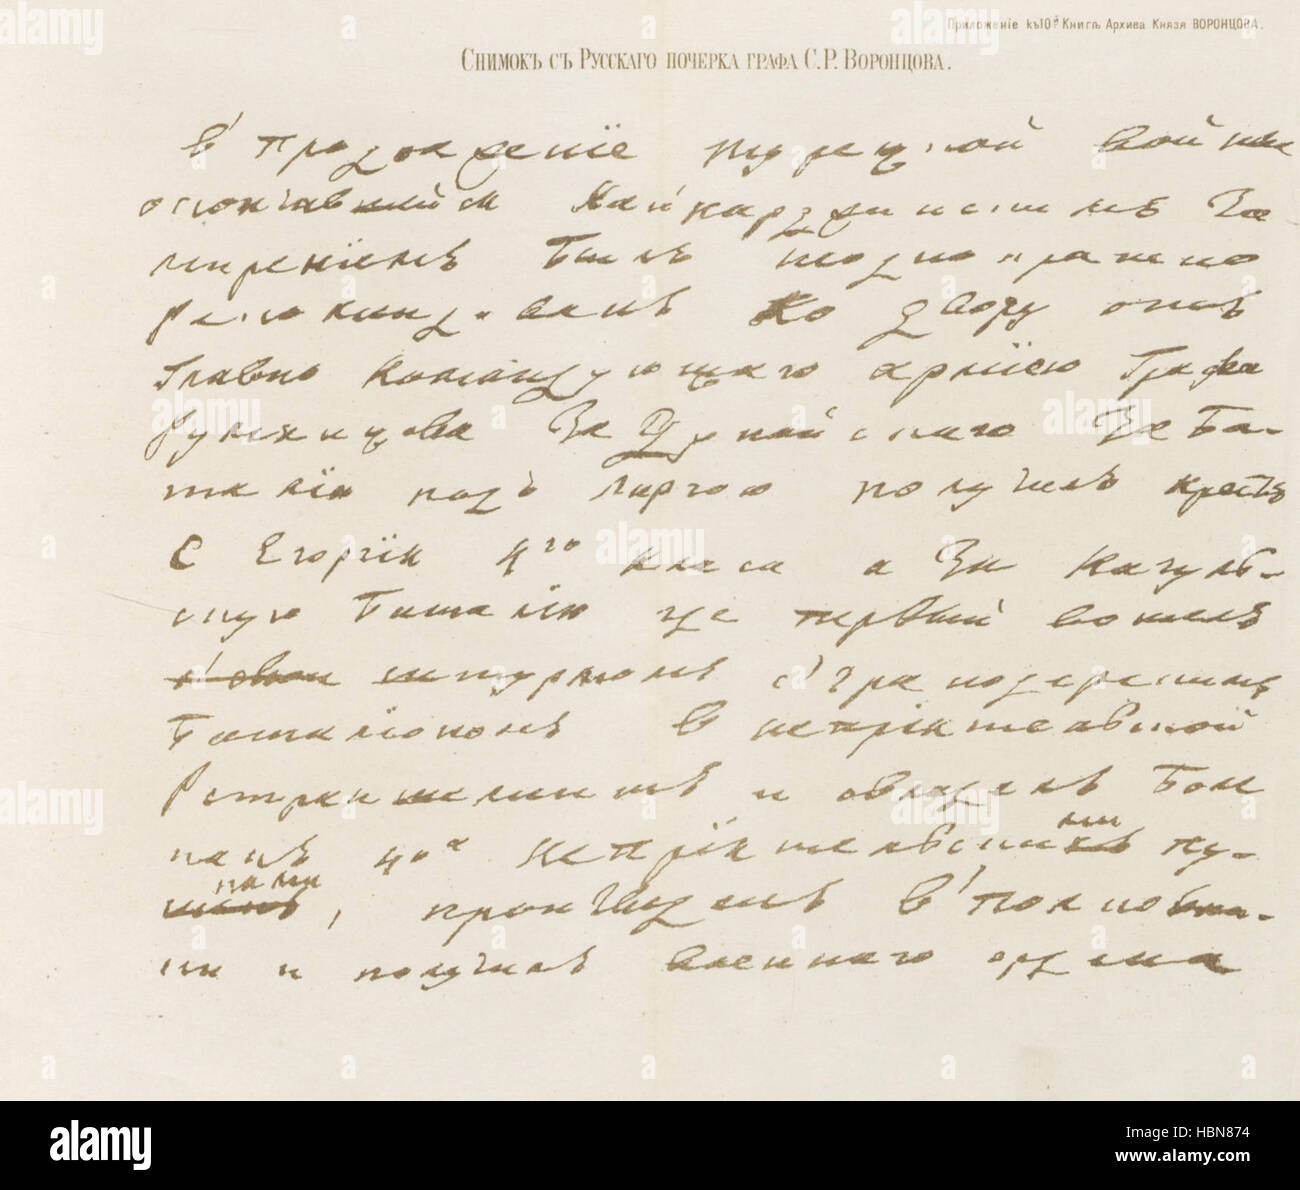 Приложеніе къ 10й Книгѣ Архива Князя ВОРОНЦОВА.
Снимокъ съ Русскаго почерка графа С.Р. Воронцова.
в' продолженіе турецкой войны
окончавшийся Кайнарджинскимъ За-
миреніемъ былъ неоднократно
рекомендованъ ко двору отъ
Главно командующаго арміею Графа
Румянцова Задунайскаго За ба-
талію подъ Ларгою получилъ крестъ
С Егоргія 4го класа а За Кагуль-
скую баталію где первый вошелъ
штурмомъ с' гранодерскимъ
баталіономъ в непріятельской
Ретраншементъ и овладелъ
непріятельскими пу-
шками, произведенъ в' полковни-
ки и получилъ военнаго ордена
alamy
HBN874
www.alamy.com